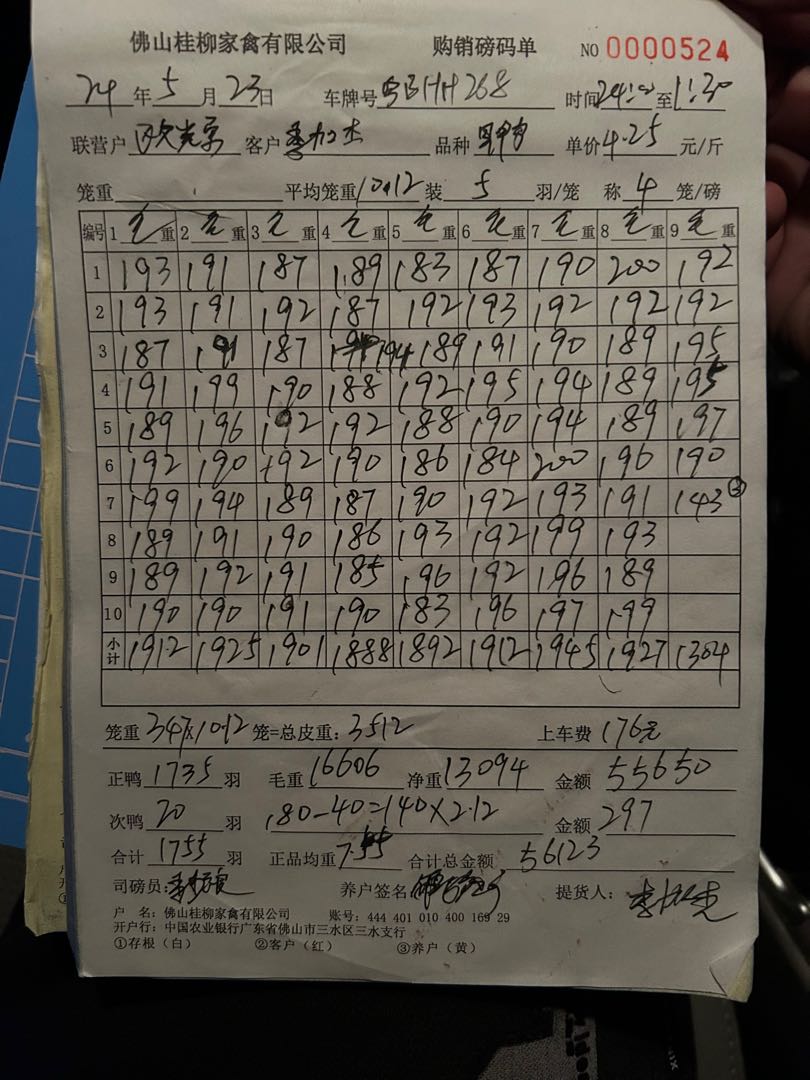 佛山桂柳家禽有限公司 购销磅码单 NO 0000524
24年5月23日 车牌号 粤BHH268 时间24:00至1:30
联营户 客户 品种 单价4.25元/斤
笼重 平均笼重10.12装5羽/笼 称4笼/磅
编号 1毛重 2毛重 3毛重 4毛重 5毛重 6毛重 7毛重 8毛重 9毛重
1 193 191 187 189 183 187 190 200 192
2 193 191 192 187 192 193 192 192 192
3 187 191 187 194 189 191 190 189 195
4 191 199 190 188 192 195 194 189 195
5 189 196 192 192 188 190 194 189 197
6 192 190 192 190 186 184 200 196 190
7 199 194 189 187 190 192 193 191 143③
8 189 191 190 186 193 192 199 193
9 189 192 191 185 196 192 196 189
10 190 190 191 190 183 196 197 199
小计 1912 1925 1901 1888 1892 1912 1945 1927 1304
笼重 347x10.12 笼=总皮重:3512 上车费 176元
正鸭 1735 羽 毛重 16606 净重 13094 金额 55650
次鸭 20 羽 180-40=140×2.12 金额 297
合计 1755 羽 正品均重 7.55 合计总金额 56123
司磅员: 养户签名: 提货人:
户 名:佛山桂柳家禽有限公司 账号:444 401 010 400 169 29
开户行:中国农业银行广东省佛山市三水区三水支行
①存根(白) ②客户(红) ③养户(黄)